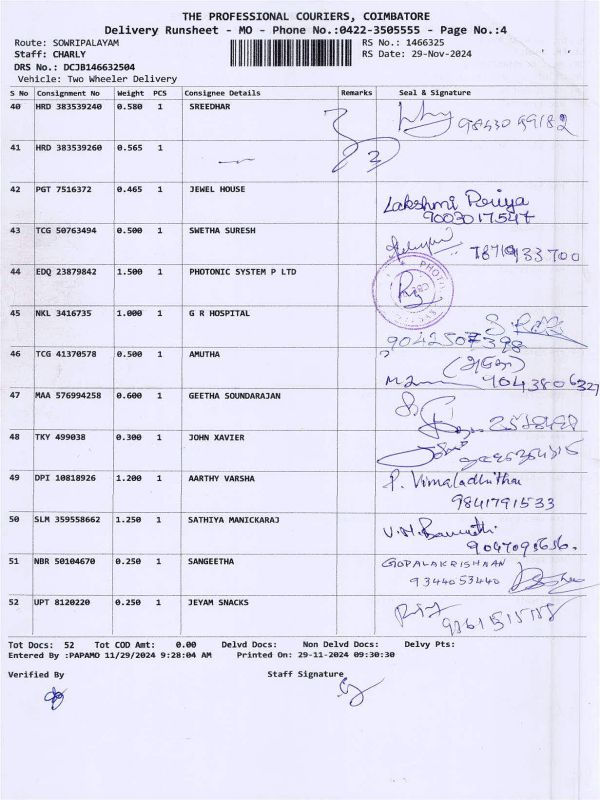 THE PROFESSIONAL COURIERS, COIMBATORE
Delivery Runsheet - MO - Phone No.:0422-3505555 - Page No.:4
Route: SOWRIPALAYAM RS No.: 1466325
Staff: CHARLY RS Date: 29-Nov-2024
DRS No.: DCJB146632504
Vehicle: Two Wheeler Delivery
S No Consignment No Weight PCS Consignee Details Remarks Seal & Signature
40 HRD 383539240 0.580 1 SREEDHAR
9843099182
41 HRD 383539260 0.565 1
42 PGT 7516372 0.465 1 JEWEL HOUSE
Lakshmi Periya
9003017547
43 TCG 50763494 0.500 1 SWETHA SURESH
7871933700
44 EDQ 23879842 1.500 1 PHOTONIC SYSTEM P LTD
45 NKL 3416735 1.000 1 G R HOSPITAL
9042507398
46 TCG 41370578 0.500 1 AMUTHA
47 MAA 576994258 0.600 1 GEETHA SOUNDARAJAN
48 TKY 499038 0.300 1 JOHN XAVIER
49 DPI 10818926 1.200 1 AARTHY VARSHA
P. Vimaladhithai
9841791533
50 SLM 359558662 1.250 1 SATHIYA MANICKARAJ
51 NBR 50104670 0.250 1 SANGEETHA
GOPALAKRISHAAN
9344053440
52 UPT 8120220 0.250 1 JEYAM SNACKS
Tot Docs: 52 Tot COD Amt: 0.00 Delvd Docs: Non Delvd Docs: Delvy Pts:
Entered By :PAPAMO 11/29/2024 9:28:04 AM Printed On: 29-11-2024 09:30:30
Verified By Staff Signature